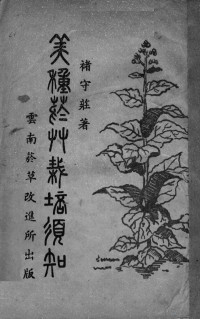 褚守莊著
美種菸艸栽培須知
雲南菸草改進所出版